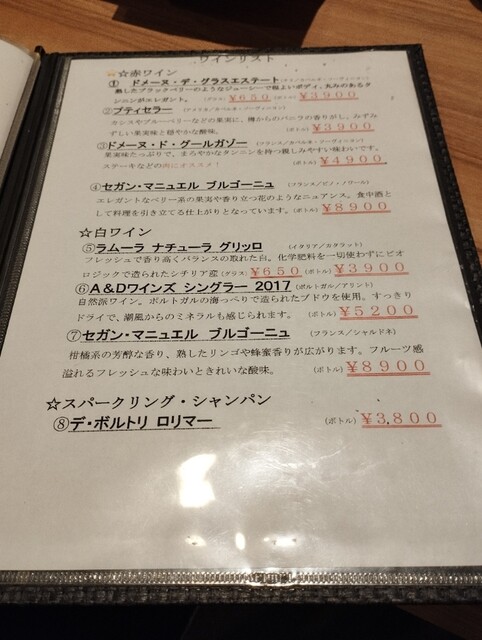 ワインリスト
☆赤ワイン
① ドメーヌ・デ・グラスエステート
熟したブラックベリーのようなジューシーで程よいボディ、丸みのあるタ
ンニンがエレガント。 (グラス) ￥650 (ボトル) ￥3900
②プティセラー (フランス/カベルネ・ソーヴィニヨン)
カシスやブルーベリーなどの果実に、樽からのバニラの香りがし、みずみ
ずしい果実味と穏やかな酸味。 (ボトル) ￥3900
③ドメーヌ・ド・グールガゾー (フランス/カベルネ・ソーヴィニヨン)
果実味たっぷりで、まろやかなタンニンを持つ親しみやすい味わいです。
ステーキなどの肉にオススメ! (ボトル) ￥4900
④セガン・マニュエル ブルゴーニュ (フランス/ピノ・ノワール)
エレガントなベリー系の果実や香り立つ花のようなニュアンス。食中酒と
して料理を引き立てる仕上がりとなっています。 (ボトル) ￥8900
☆白ワイン
⑤ラムーラ ナチューラ グリッロ (イタリア/カタラット)
フレッシュで香り高くバランスの取れた白。化学肥料を一切使わずにビオ
ロジックで造られたシチリア産 (グラス) ￥650 (ボトル) ￥3900
⑥A&Dワインズ シングラー 2017 (ポルトガル/アリント)
自然派ワイン。ポルトガルの海っぺりで造られたブドウを使用。すっきり
ドライで、潮風からのミネラルも感じられます。 (ボトル) ￥5200
⑦セガン・マニュエル ブルゴーニュ (フランス/シャルドネ)
柑橘系の芳醇な香り、熟したリンゴや蜂蜜香りが広がります。フルーツ感
溢れるフレッシュな味わいときれいな酸味。 (ボトル) ￥8900
☆スパークリング・シャンパン
⑧デ・ボルトリ ロリマー (ボトル) ￥3,800